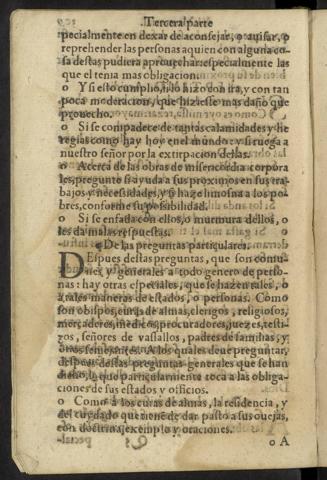 Tercera parte
pecialmente en dexar de aconsejar, o auisar, o
reprehender las personas a quien con alguna co-
sa destas pudiera aprouechar: especialmente las
que el tenia mas obligacion.
o Y si esto cumplio, si lo hizo con ira, y con tan
poca moderacion, que hiziesse mas daño que
prouecho.
o Si se compadece de tantas calamidades y he
regias como hay hoy en el mundo: y si ruega a
nuestro señor por la extirpacion dellas.
o Acerca de las obras de misericordia corpora
les, pregunte si ayuda a sus proximos en sus tra-
bajos y necessidades, y si haze limosnas a los po-
bres, conforme su possibilidad.
o Si se enfada con ellos, o murmura dellos, o
les da malas respuestas.
De las preguntas particulares.
DEspues destas preguntas, que son comu-
nales y generales a todo genero de perso-
nas: hay otras especiales, que se hazen a tales, o
a tales maneras de estados, o personas. Como
son obispos, curas de almas, clerigos, religiosos,
mercaderes, medicos, procuradores, juezes, testi-
gos, señores de vasallos, padres de familias, y
otros semejantes. A los quales deue preguntar,
despues destas preguntas generales que se han
dicho, lo que particularmente toca a las obliga-
ciones de sus estados y officios.
o Como a los curas de almas, la residencia, y
del cuydado que tiene de dar pasto a sus ouejas,
con doctrina, exemplo y oraciones.
o A